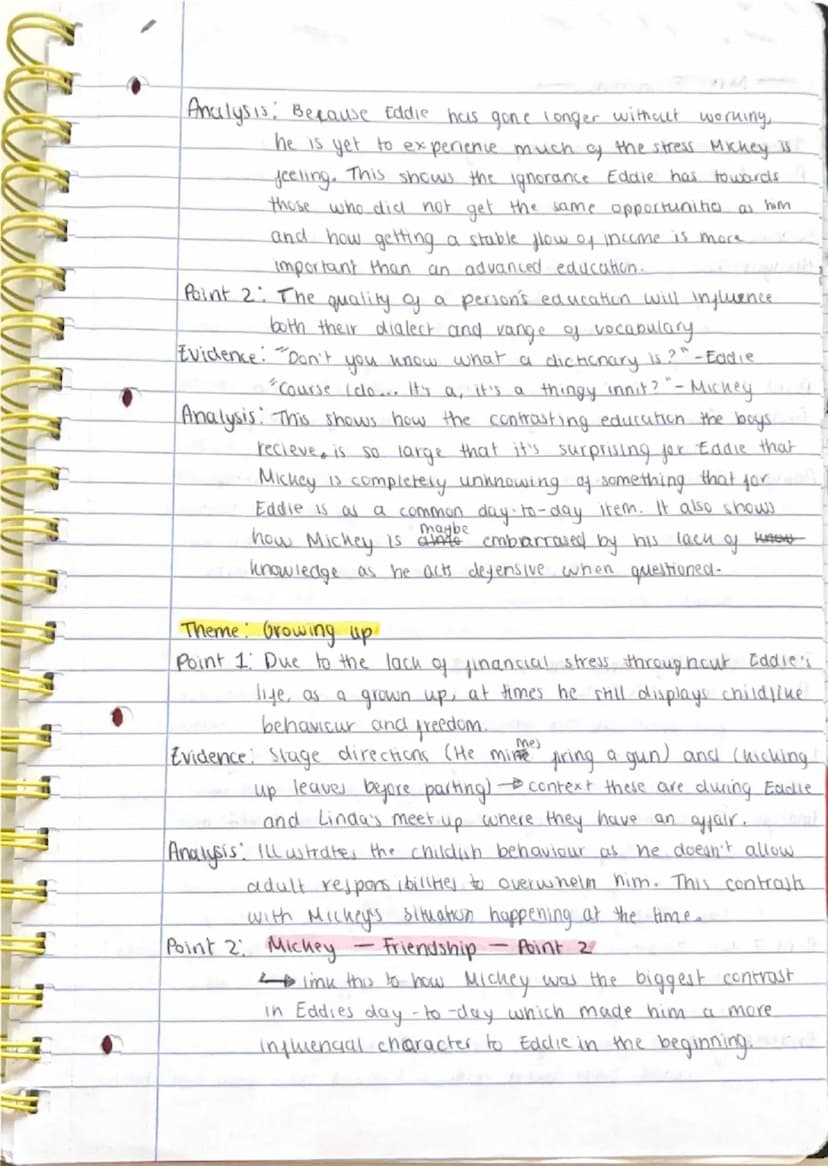 Analysis: Because Eddie has gone longer without working,
he is yet to experience much of the stress Mickey is
feeling. This shows the ignorance Eddie has towards
those who did not get the same opportunities as him
and how getting a stable flow of income is more
important than an advanced education.
Point 2: The quality of a person's education will influence
both their dialect and range of vocabulary
Evidence: "Don't you know what a dictionary is?" - Eddie
"Course I do... It's a, it's a thingy innit?" - Mickey
Analysis: This shows how the contrasting education the boys
recieve, is so large that it's surprising for Eddie that
Mickey is completely unknowing of something that for
Eddie is as a common day-to-day item. It also shows
how Mickey is maybe embarrased by his lack of know
knowledge as he acts defensive when questioned.
Theme: Growing up
Point 1: Due to the lack of financial stress throughout Eddie's
life, as a grown up, at times he still displays childlike
behaviour and freedom.
Evidence: Stage directions (He mimes firing a gun) and (kicking
up leaves before parting) → context these are during Eddie
and Linda's meet up where they have an affair.
Analysis: Illustrates the childish behaviour as he doesn't allow
adult responsibilities to overwhelm him. This contrasts
with Mickey's situation happening at the time.
Point 2: Mickey - Friendship - Point 2
↳ link this to how Mickey was the biggest contrast
in Eddies day-to-day which made him a more
influencial character to Eddie in the beginning.